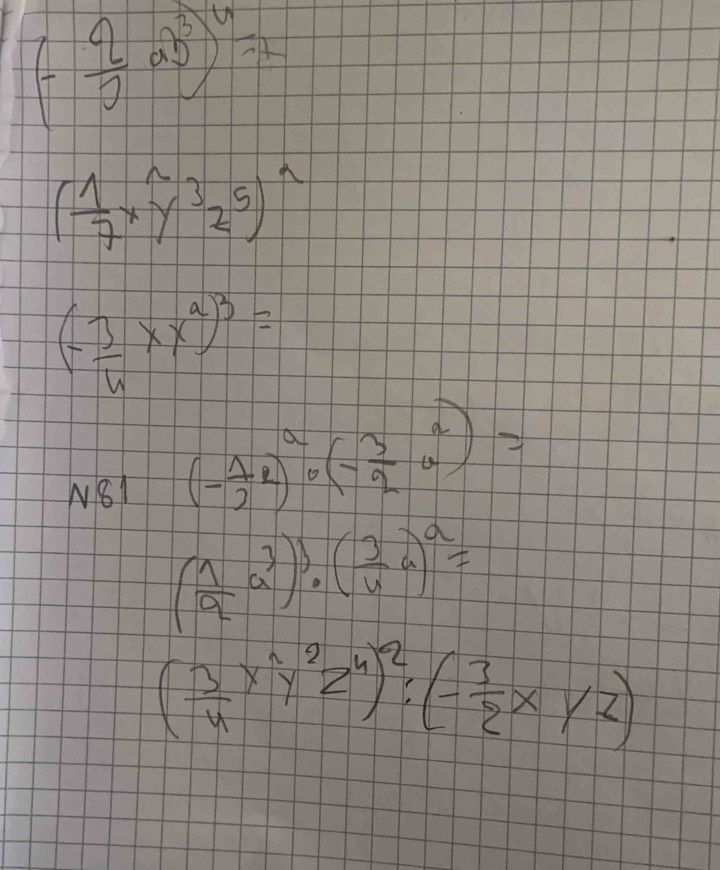 (- 2/3 ab³)⁴ =
(1/7 x²y³z⁵)²
(- 3/4 xy²)³ =
N81 (- 1/3 a)² · (- 3/2 a²) =
(1/2 a³)³ · (3/4 a)² =
(3/4 x²y²z⁴)² : (- 3/2 x y z)